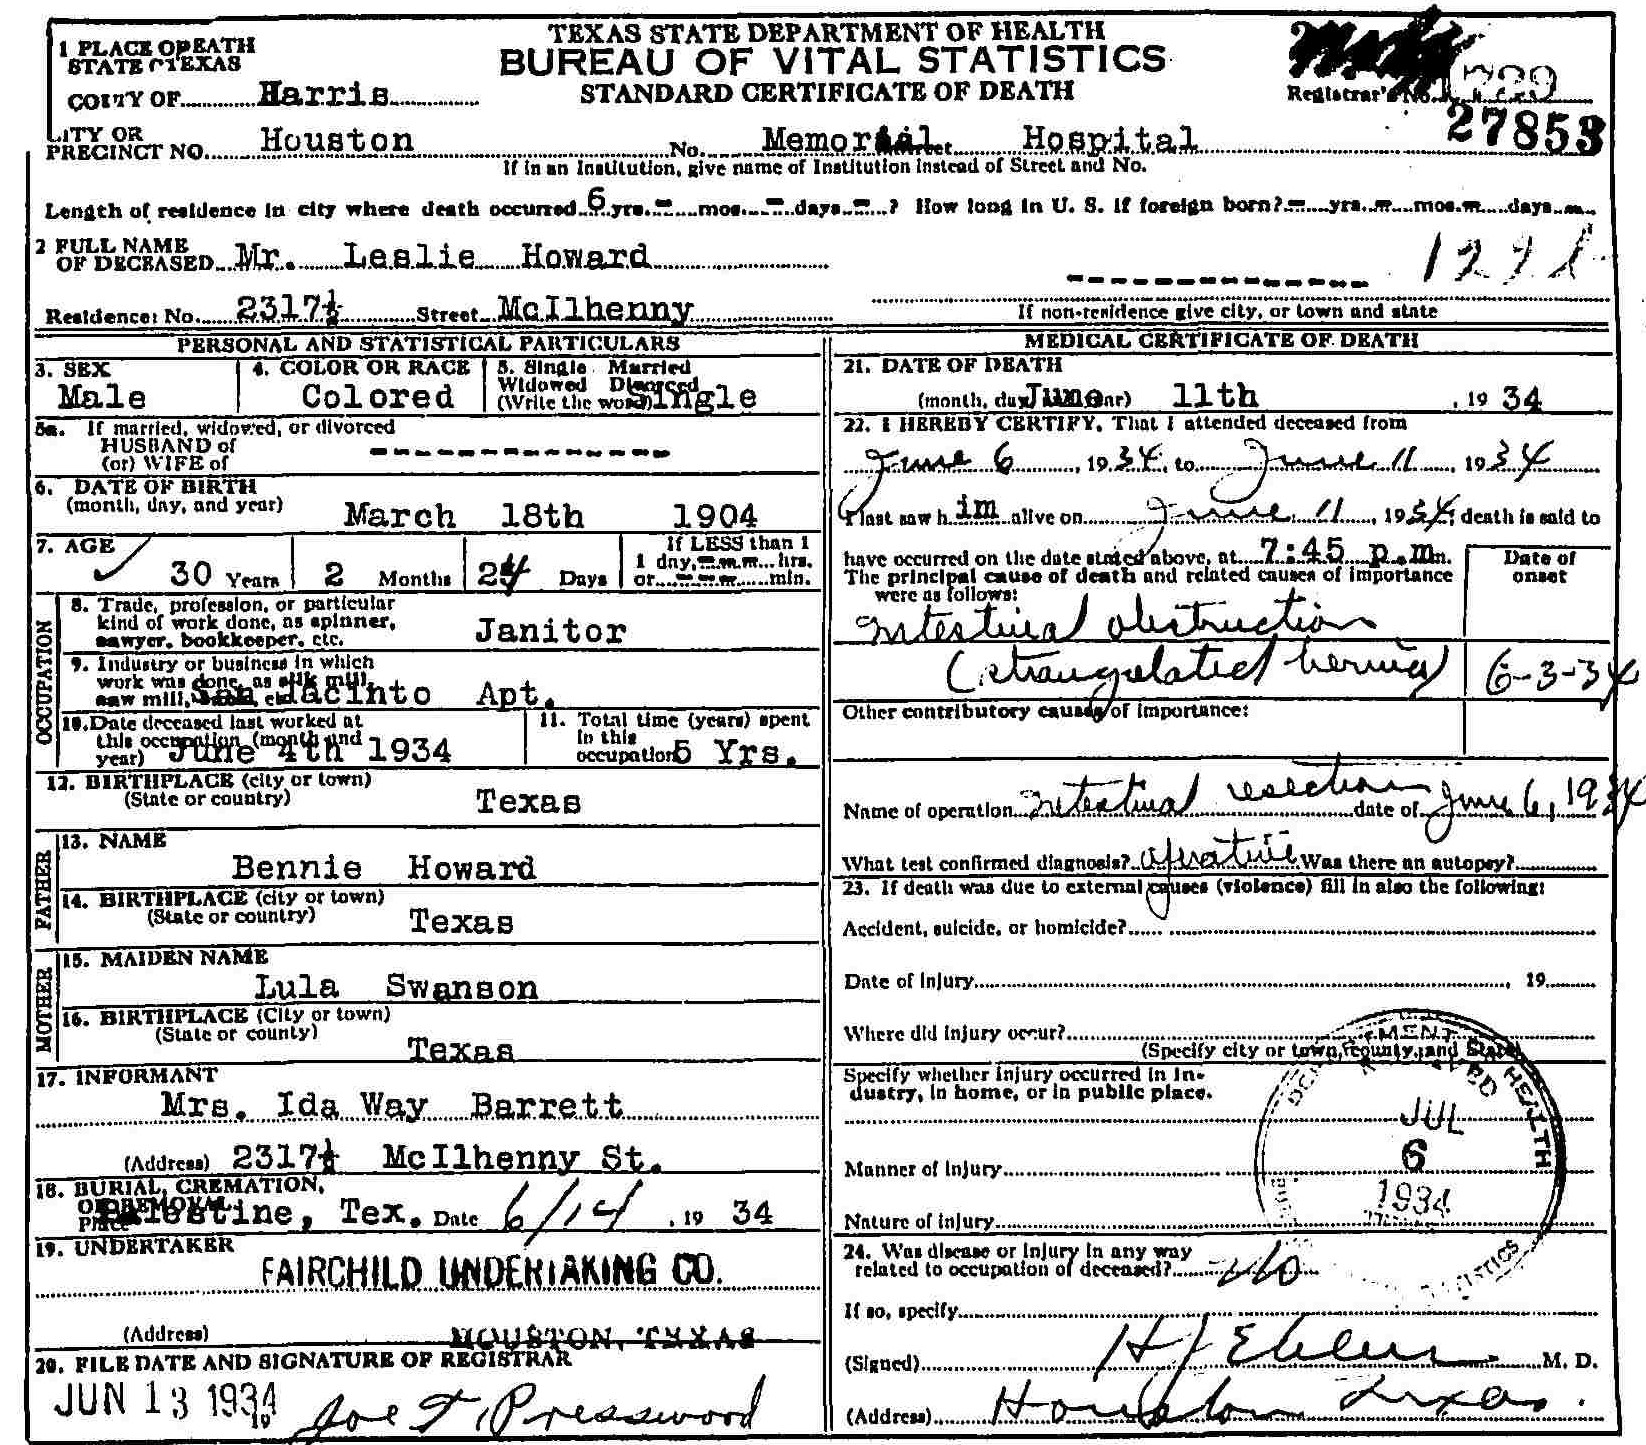 TEXAS STATE DEPARTMENT OF HEALTH
BUREAU OF VITAL STATISTICS
STANDARD CERTIFICATE OF DEATH
1 PLACE OF DEATH
STATE OF TEXAS
COUNTY OF Harris
Registrar's No.
27853
CITY OR
PRECINCT NO. Houston No. Memorial Hospital
If in an Institution, give name of Institution instead of Street and No.
Length of residence in city where death occurred 6 yrs. - mos. - days - ? How long in U. S. if foreign born? - yrs. - mos. - days -
2 FULL NAME
OF DECEASED Mr. Leslie Howard
Residence: No. 2317½ Street McIlhenny
If non-residence give city, or town and state
PERSONAL AND STATISTICAL PARTICULARS
3. SEX
Male
4. COLOR OR RACE
Colored
5. Single Married
Widowed Divorced
(Write the word) Single
5a. If married, widowed, or divorced
HUSBAND of
(or) WIFE of
6. DATE OF BIRTH
(month, day, and year) March 18th 1904
7. AGE
30 Years 2 Months 24 Days
If LESS than 1
1 day, hrs.
or min.
OCCUPATION
8. Trade, profession, or particular
kind of work done, as spinner,
sawyer, bookkeeper, etc. Janitor
9. Industry or business in which
work was done, as silk mill,
saw mill, bank, etc. San Jacinto Apt.
10. Date deceased last worked at
this occupation (month and
year) June 4th 1934
11. Total time (years) spent
in this
occupation 5 Yrs.
12. BIRTHPLACE (city or town)
(State or country) Texas
FATHER
13. NAME
Bennie Howard
14. BIRTHPLACE (city or town)
(State or country) Texas
MOTHER
15. MAIDEN NAME
Lula Swanson
16. BIRTHPLACE (City or town)
(State or county) Texas
17. INFORMANT
Mrs. Ida Way Barrett
(Address) 2317½ McIlhenny St.
18. BURIAL, CREMATION,
OR REMOVAL
Place Palestine, Tex. Date 6/14, 19 34
19. UNDERTAKER
FAIRCHILD UNDERTAKING CO.
(Address) HOUSTON, TEXAS
20. FILE DATE AND SIGNATURE OF REGISTRAR
JUN 13 1934 Joe T. Presswood
MEDICAL CERTIFICATE OF DEATH
21. DATE OF DEATH
(month, day, year) June 11th, 19 34
22. I HEREBY CERTIFY, That I attended deceased from
June 6, 1934, to June 11, 1934
I last saw him alive on June 11, 1934, death is said to
have occurred on the date stated above, at 7:45 p.m.
The principal cause of death and related causes of importance
were as follows:
Date of
onset
Intestinal obstruction
(strangulated hernia) 6-3-34
Other contributory causes of importance:
Name of operation Intestinal resection date of June 6, 1934
What test confirmed diagnosis? operative Was there an autopsy?
23. If death was due to external causes (violence) fill in also the following:
Accident, suicide, or homicide?
Date of injury , 19
Where did injury occur?
(Specify city or town, county, and State)
Specify whether injury occurred in in-
dustry, in home, or in public place.
Manner of injury
Nature of injury
JUL
6
1934
24. Was disease or injury in any way
related to occupation of deceased? No
If so, specify
(Signed) M. D.
(Address) Houston Texas